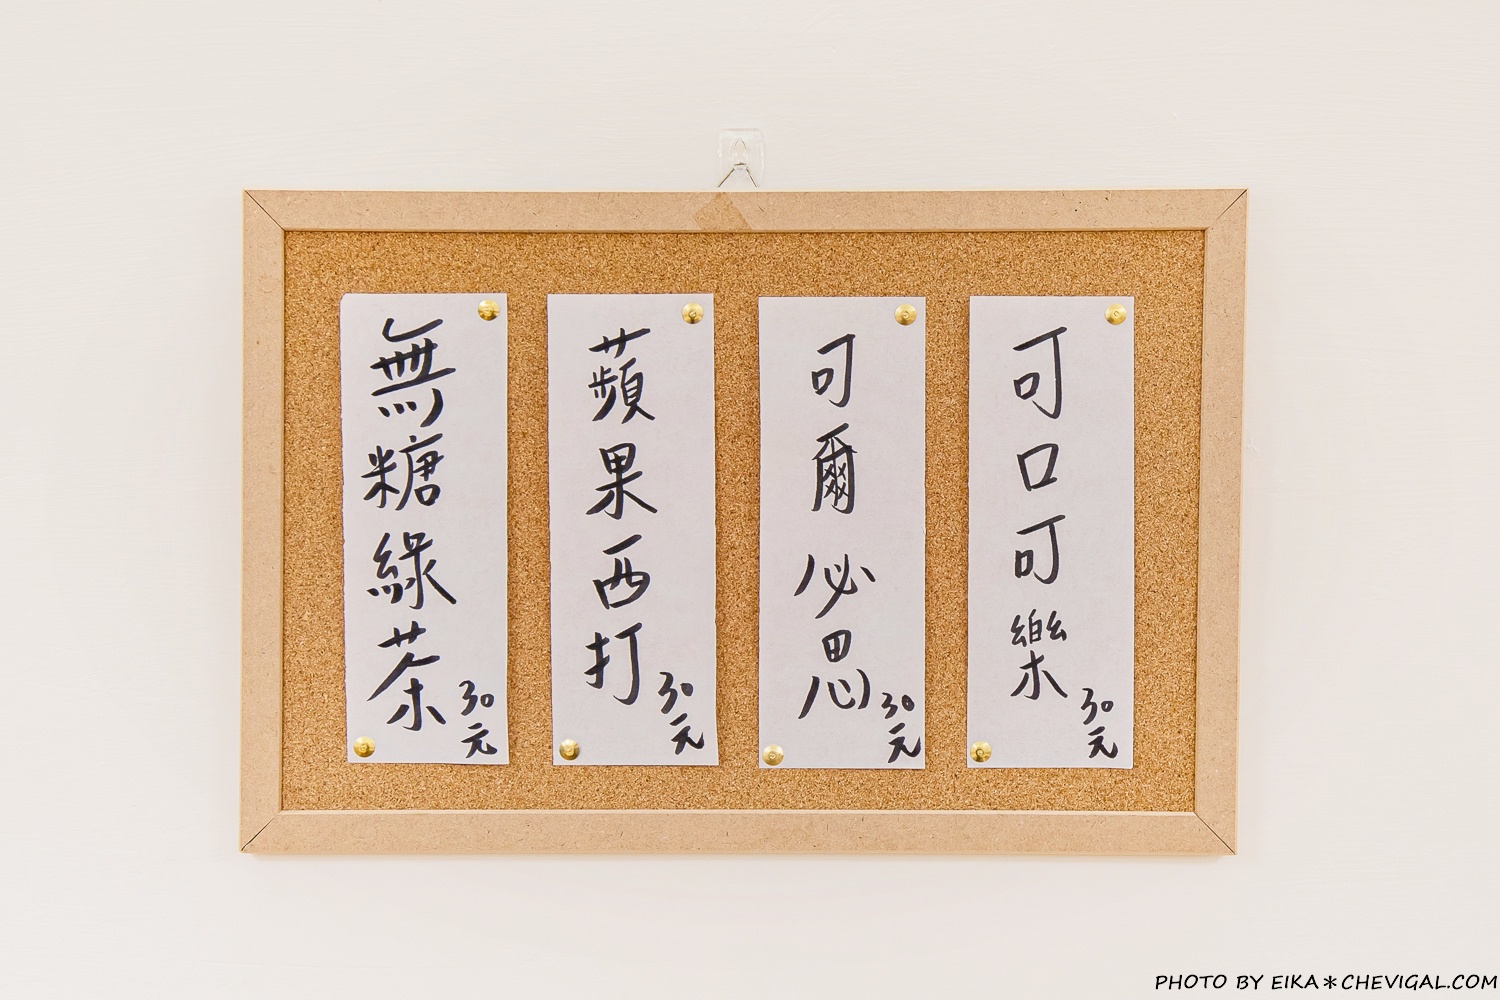 可口可樂
30元
可爾必思
30元
蘋果西打
30元
無糖綠茶
30元
PHOTO BY EIKA＊CHEVIGAL.COM